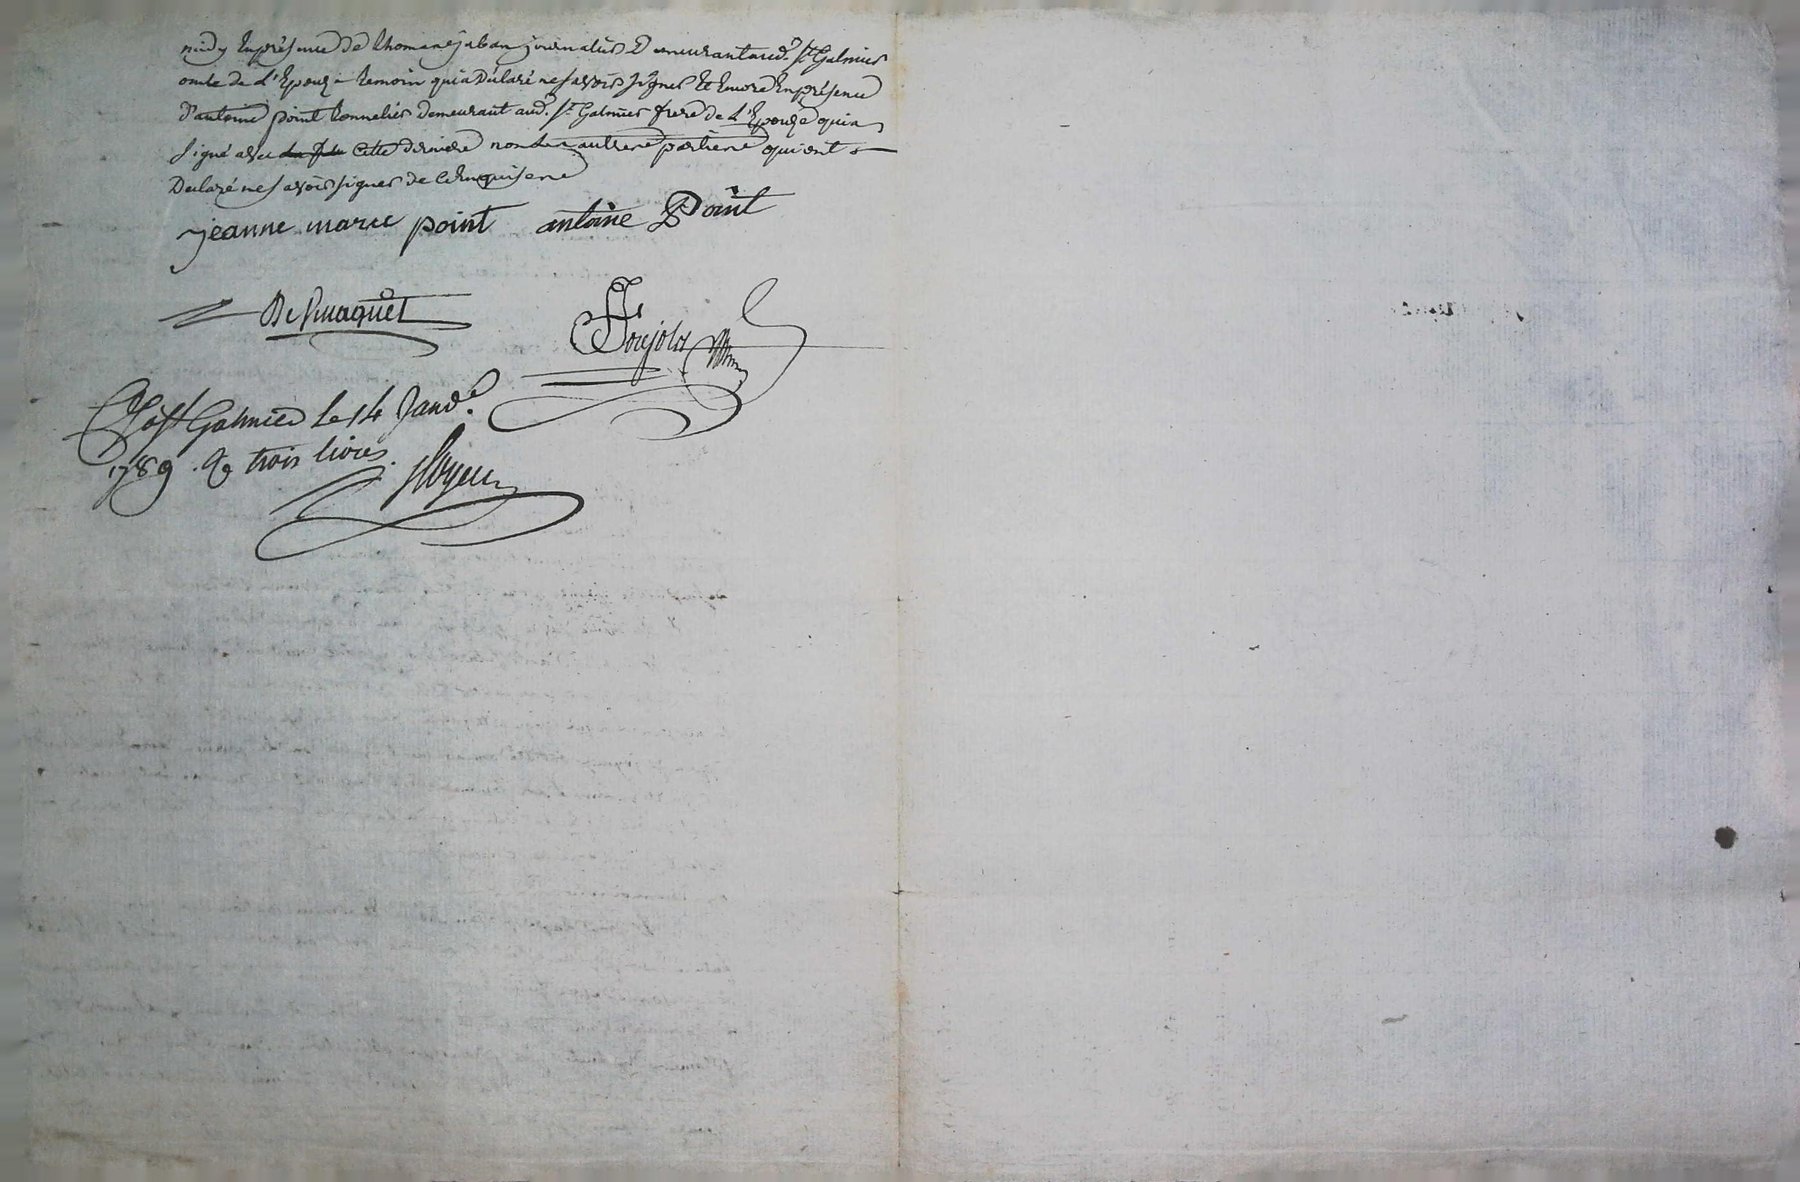 midy En présence de thomas jaban journalier Demeurant aud. St Galmier
oncle de L'Epouze temoin qui a Déclaré ne savoir signer Et Encore En présence
D'antoine point tonnelier demeurant aud. St Galmier frere de L'Epouze qui a
signé avec Cette derniere non les autres parties qui ont
Declaré ne savoir signer de ce Enquises
jeanne marie point antoine Point
Cté a St Galmier Le 14 Janv.
1789. R trois livres.